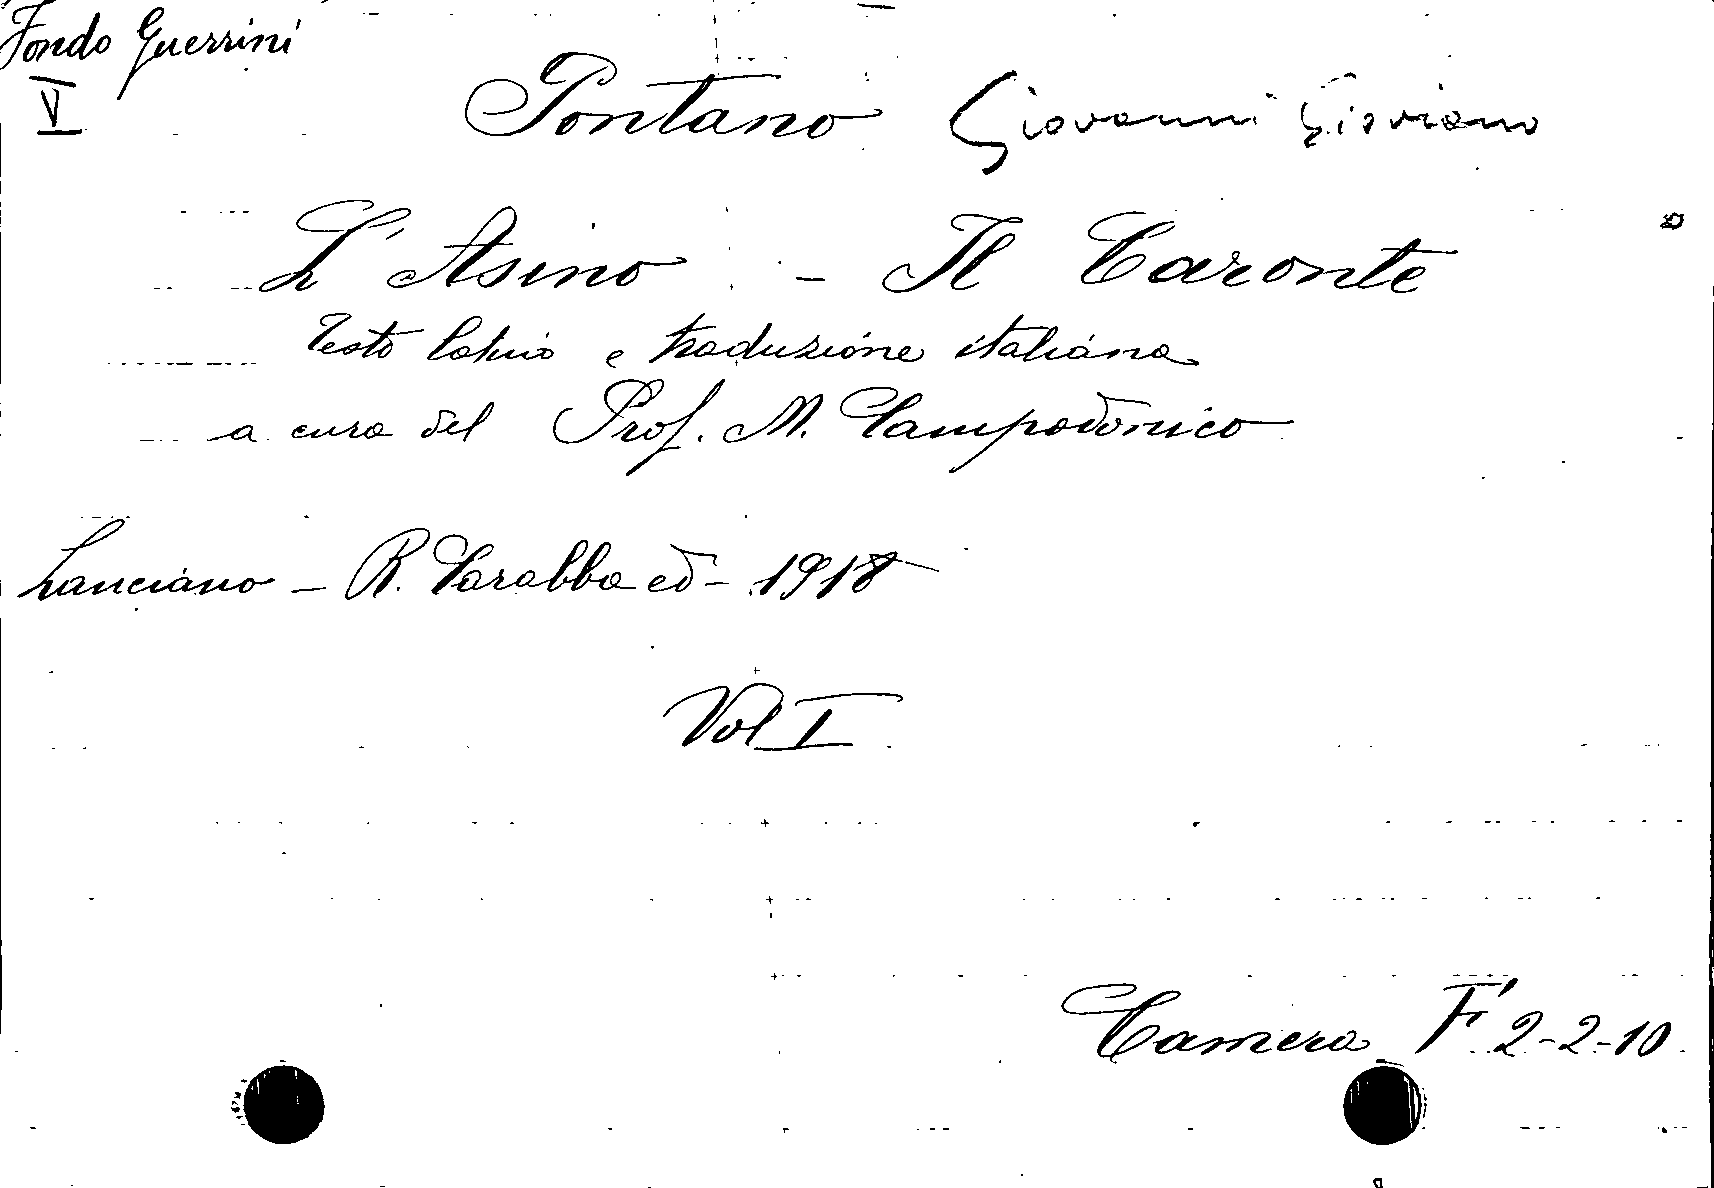 Fondo Guerrini
V
Pontano Giovanni Gioviano
L'Asino - Il Caronte
Testo latino e traduzione italiana
a cura del Prof. M. Campodonico
Lanciano - R. Carabba ed - 1918
Vol I
Camera F' 2-2-10